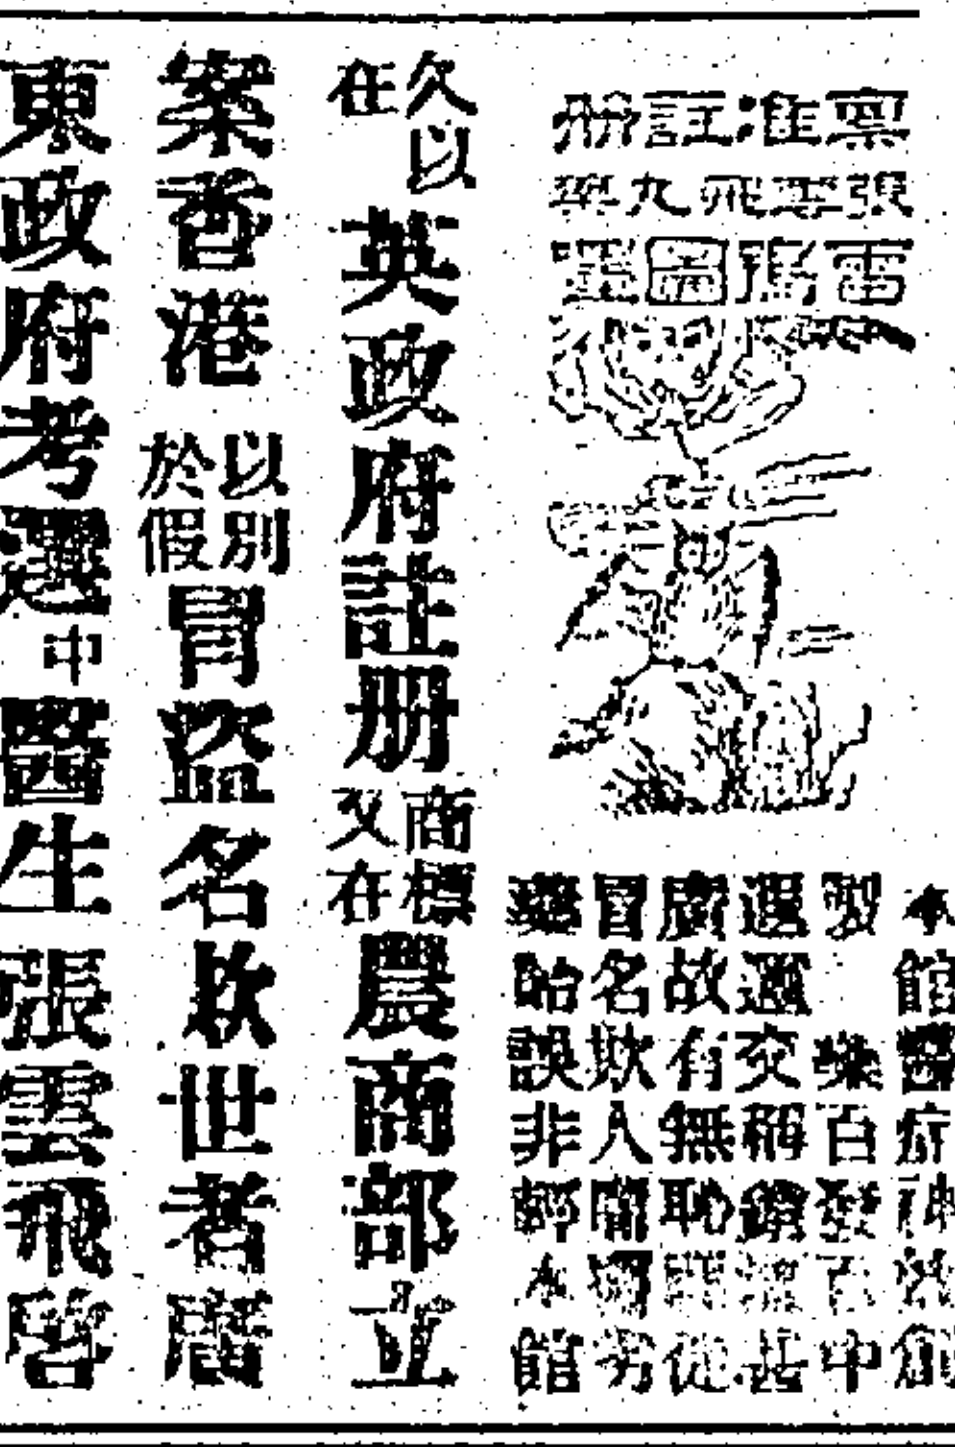 稟准註册
張雲飛
雷
本館醫症神效創
製藥百發百中
遐邇交稱銷甚
廣故有無恥徒
冒名欺人劣
藥貽誤非輕本館
久以在英政府註册商標又在農商部立
案香港以別於假冒盜名欺世者廣
東政府考選中醫生張雲飛啓